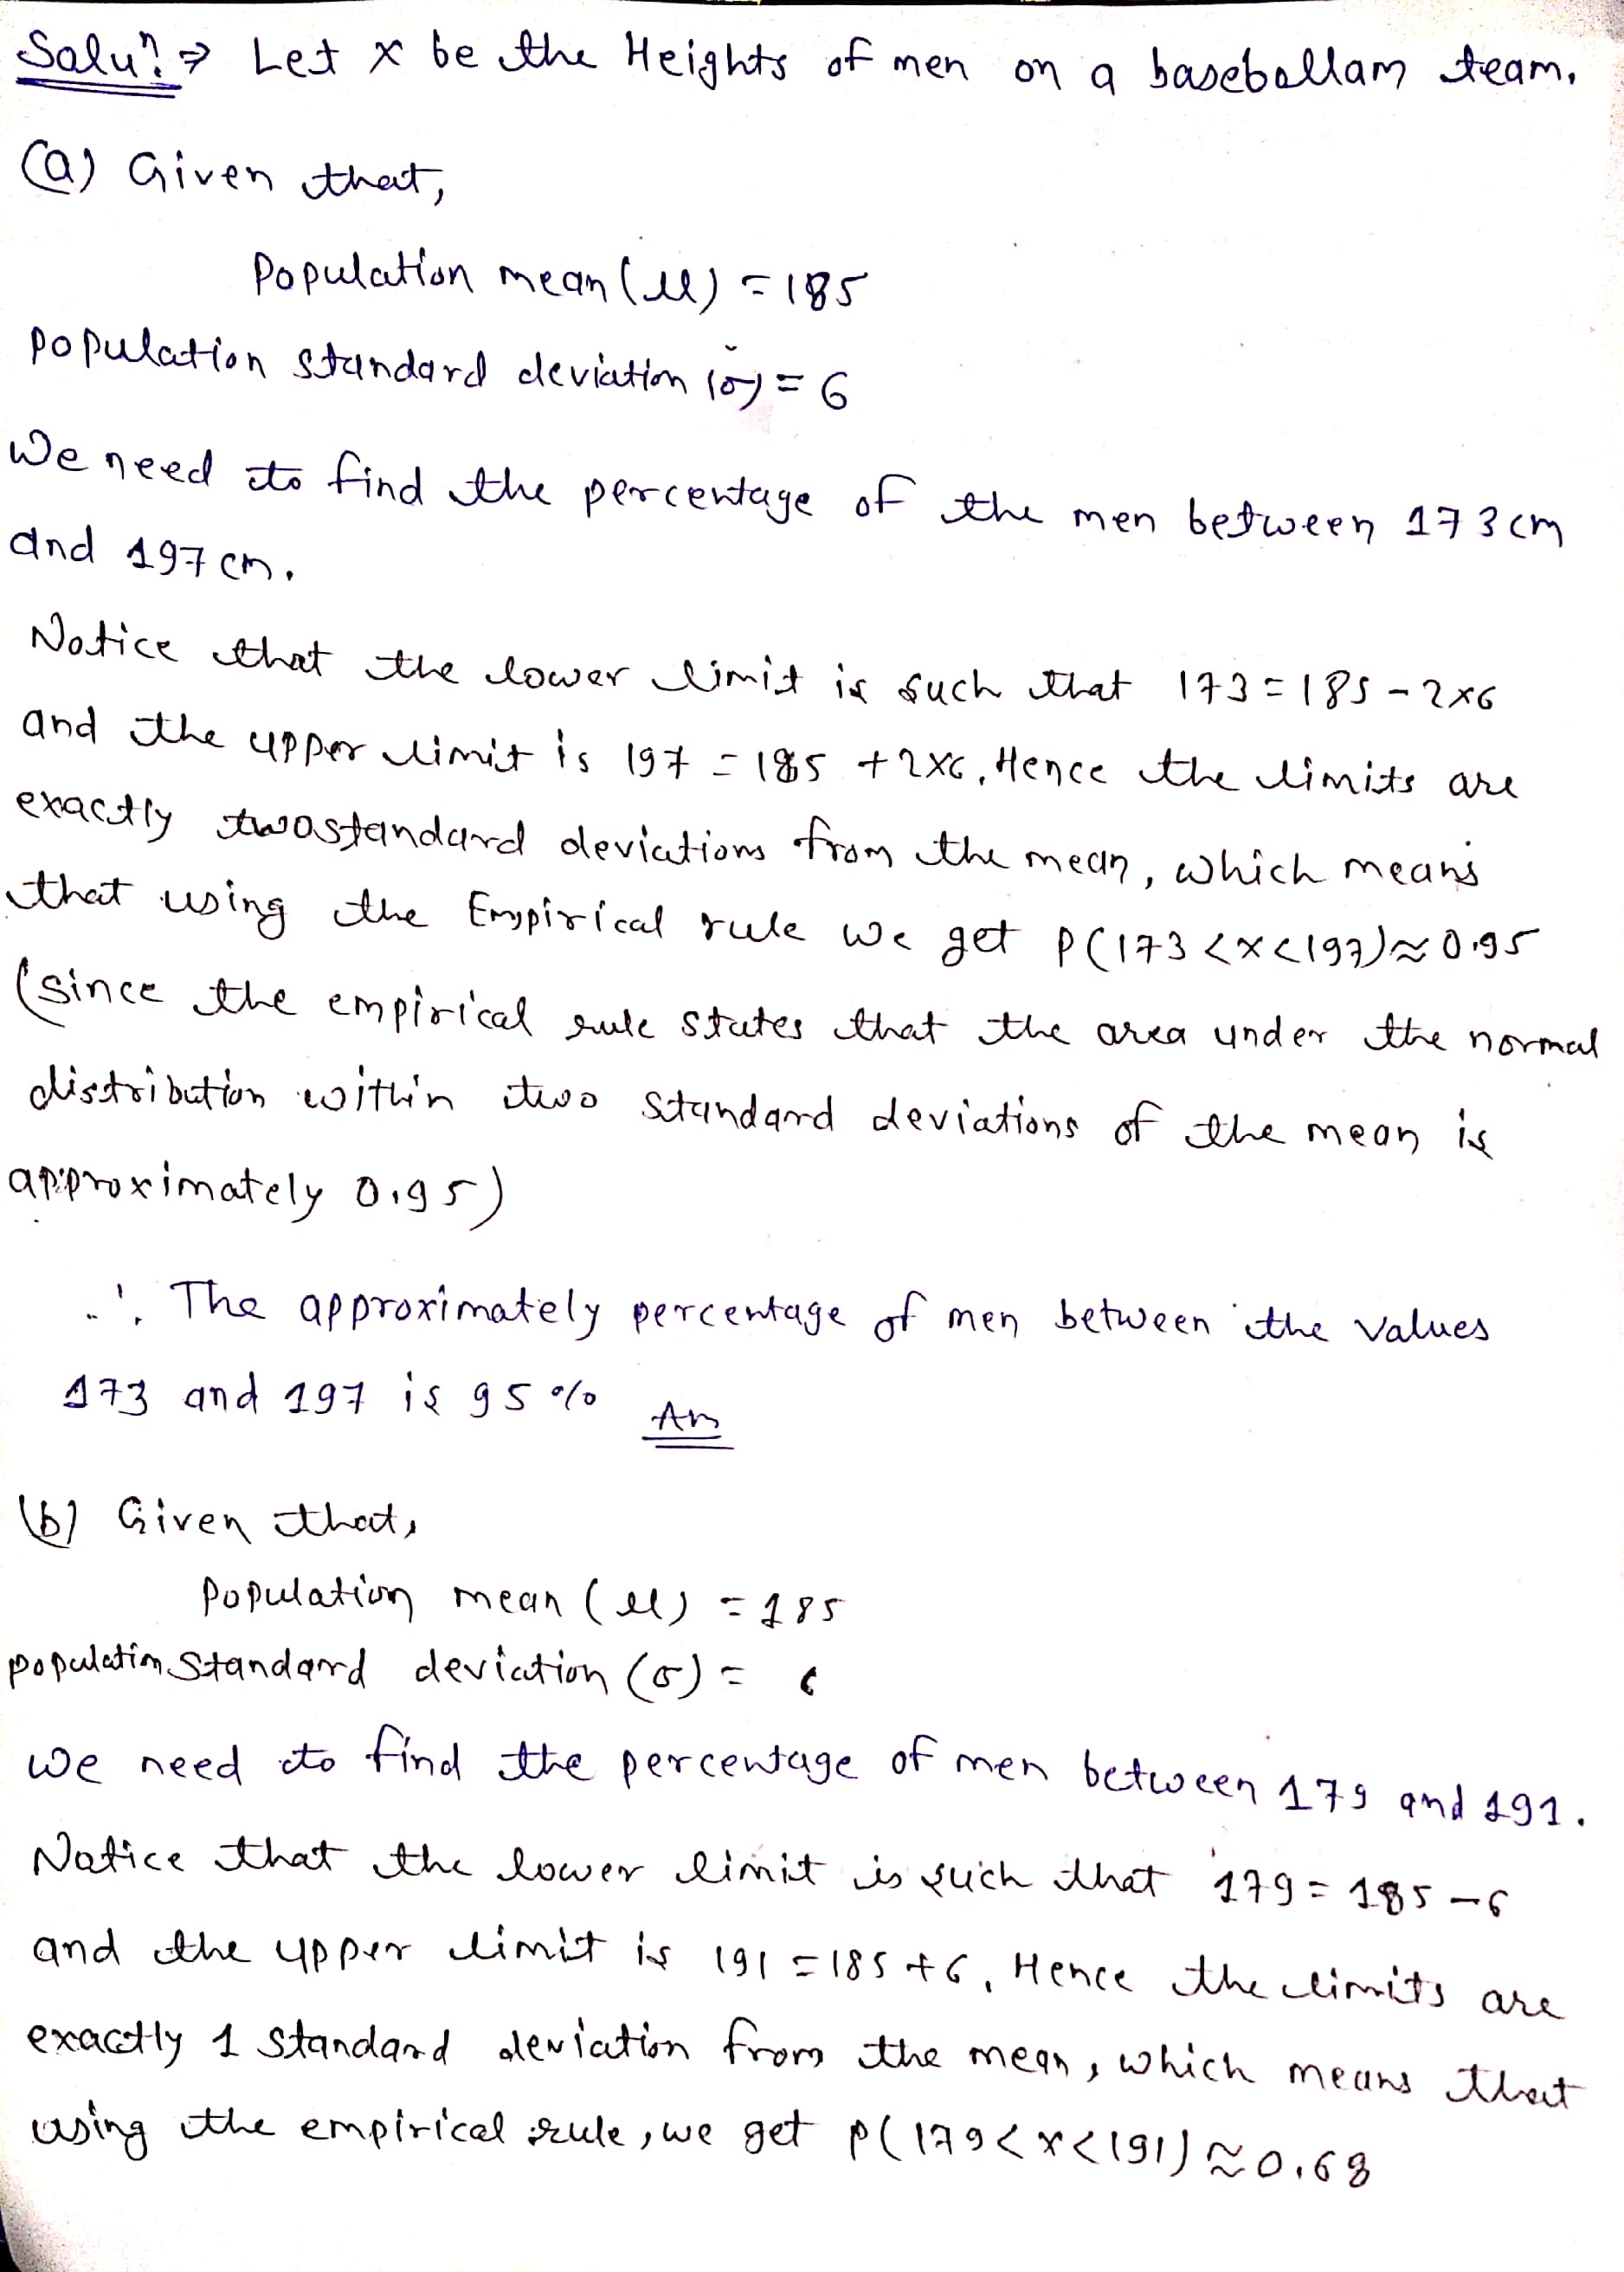 Solun. ⇒ Let x be the Heights of men on a basebollam team.
(a) Given that,
Population mean (μ) = 185
Population standard deviation (σ) = 6
We need to find the percentage of the men between 173cm
and 197cm.
Notice that the lower limit is such that 173 = 185 - 2×6
and the upper limit is 197 = 185 + 2×6, Hence the limits are
exactly two standard deviations from the mean, which means
that using the Empirical rule we get P(173 < x < 197) ≈ 0.95
(since the empirical rule states that the area under the normal
distribution within two standard deviations of the mean is
approximately 0.95)
∴ The approximately percentage of men between the values
173 and 197 is 95% Ans
(b) Given that,
Population mean (μ) = 185
population standard deviation (σ) = 6
We need to find the percentage of men between 179 and 191.
Notice that the lower limit is such that 179 = 185 - 6
and the upper limit is 191 = 185 + 6, Hence the limits are
exactly 1 standard deviation from the mean, which means that
using the empirical rule, we get P(179 < x < 191) ≈ 0.68